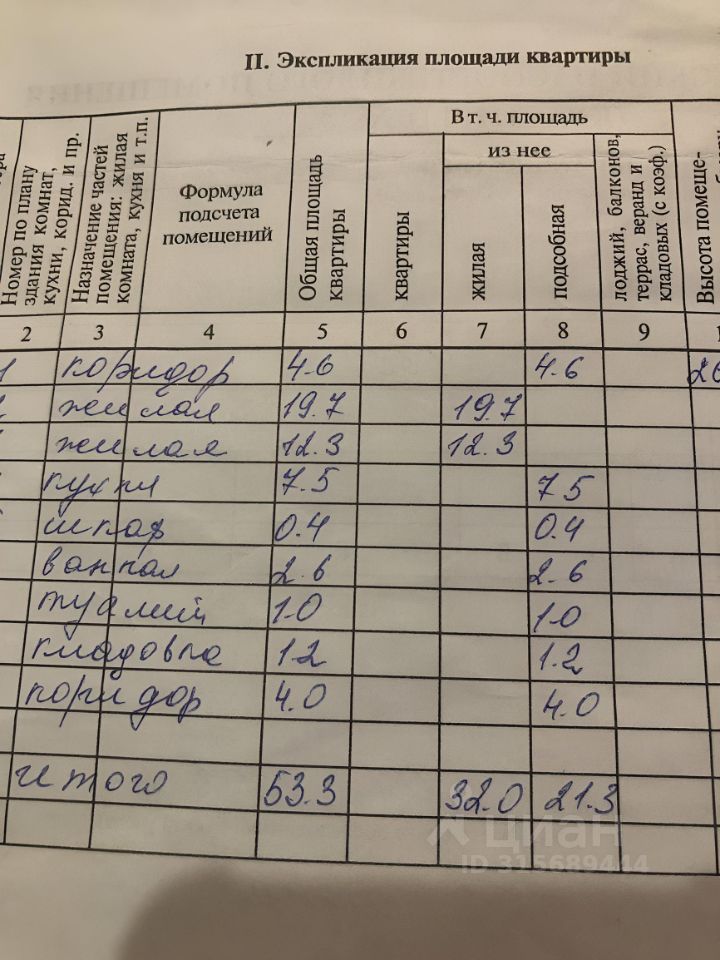 II. Экспликация площади квартиры
Номер по плану здания комнат, кухни, корид. и пр.
Назначение частей помещения: жилая комната, кухня и т.п.
Формула
подсчета
помещений
Общая площадь квартиры
В т. ч. площадь
из нее
квартиры
жилая
подсобная
лоджий, балконов, террас, веранд и кладовых (с коэф.)
Высота помеще-
2 3 4 5 6 7 8 9
1 коридор 4.6 4.6
жилая 19.7 19.7
жилая 12.3 12.3
кухня 7.5 7.5
шкаф 0.4 0.4
ванная 2.6 2.6
туалет 1.0 1.0
кладовка 1.2 1.2
коридор 4.0 4.0
итого 53.3 32.0 21.3
циан
ID 315689444